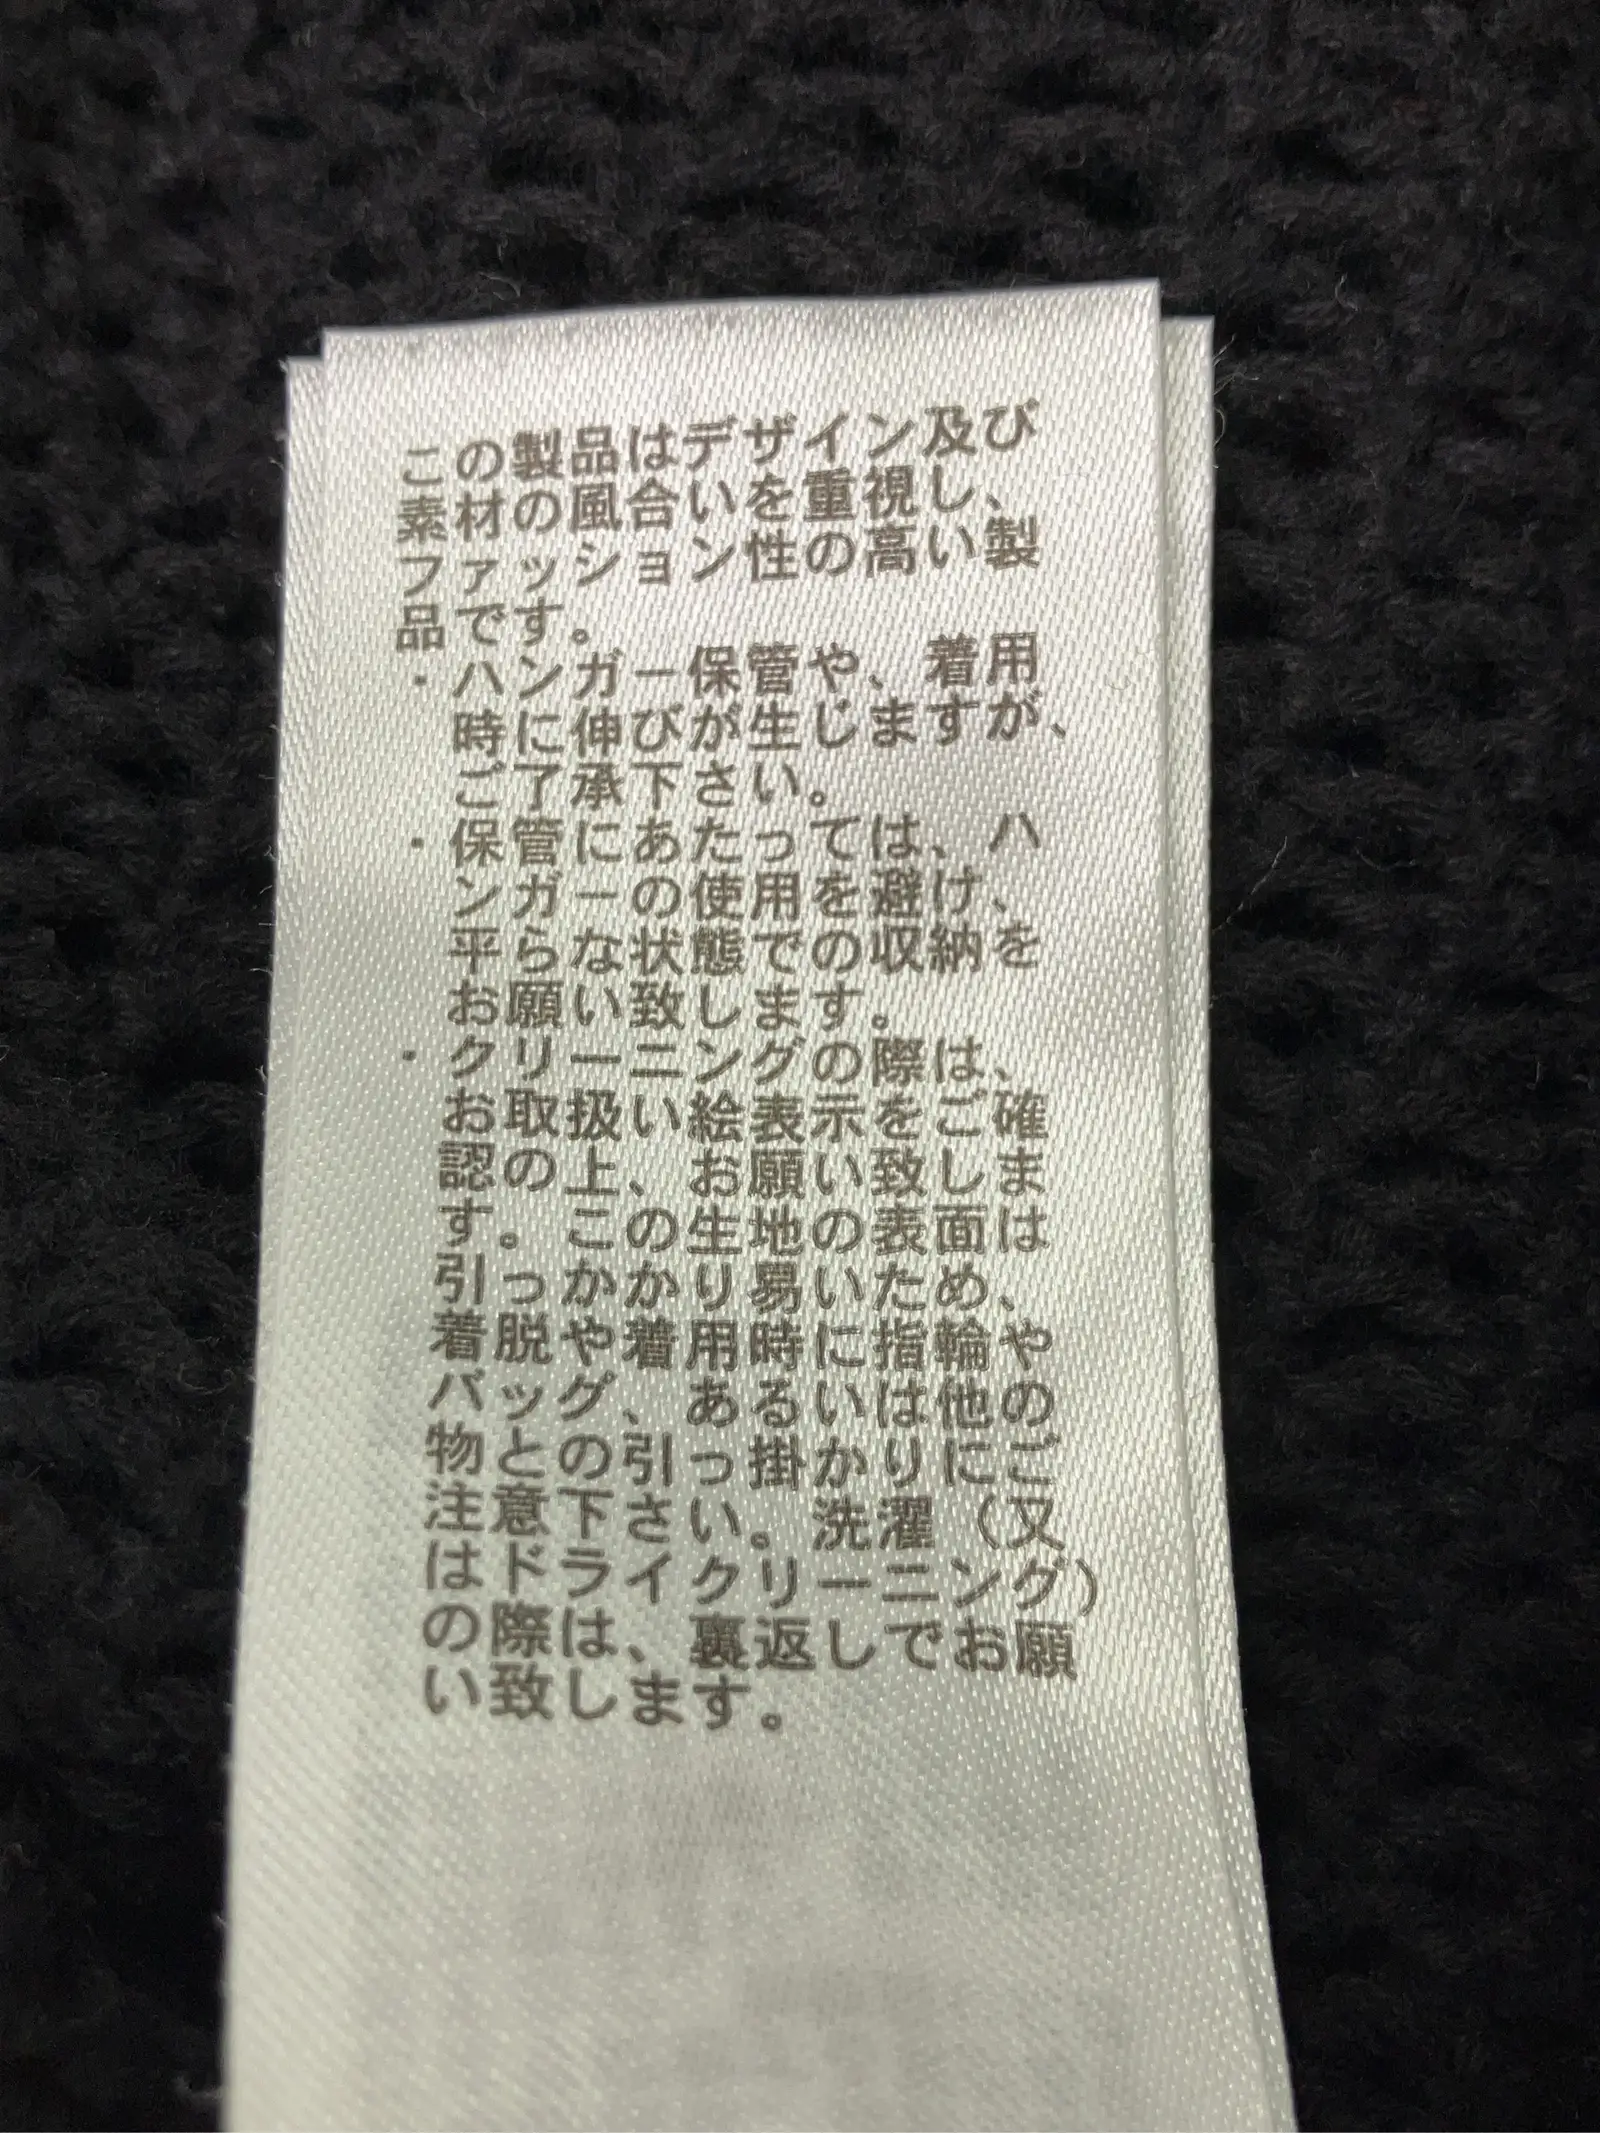 この製品はデザイン及び
素材の風合いを重視し、
ファッション性の高い製
品です。
・ハンガー保管や、着用
時に伸びが生じますが、
ご了承下さい。
・保管にあたっては、ハ
ンガーの使用を避け、
平らな状態での収納を
お願い致します。
・クリーニングの際は、
お取扱い絵表示をご確
認の上、お願い致しま
す。この生地の表面は
引っかかり易いため、
着脱や着用時に指輪や
バッグ、あるいは他の
物との引っ掛かりにご
注意下さい。洗濯（又
はドライクリーニング）
の際は、裏返しでお願
い致します。